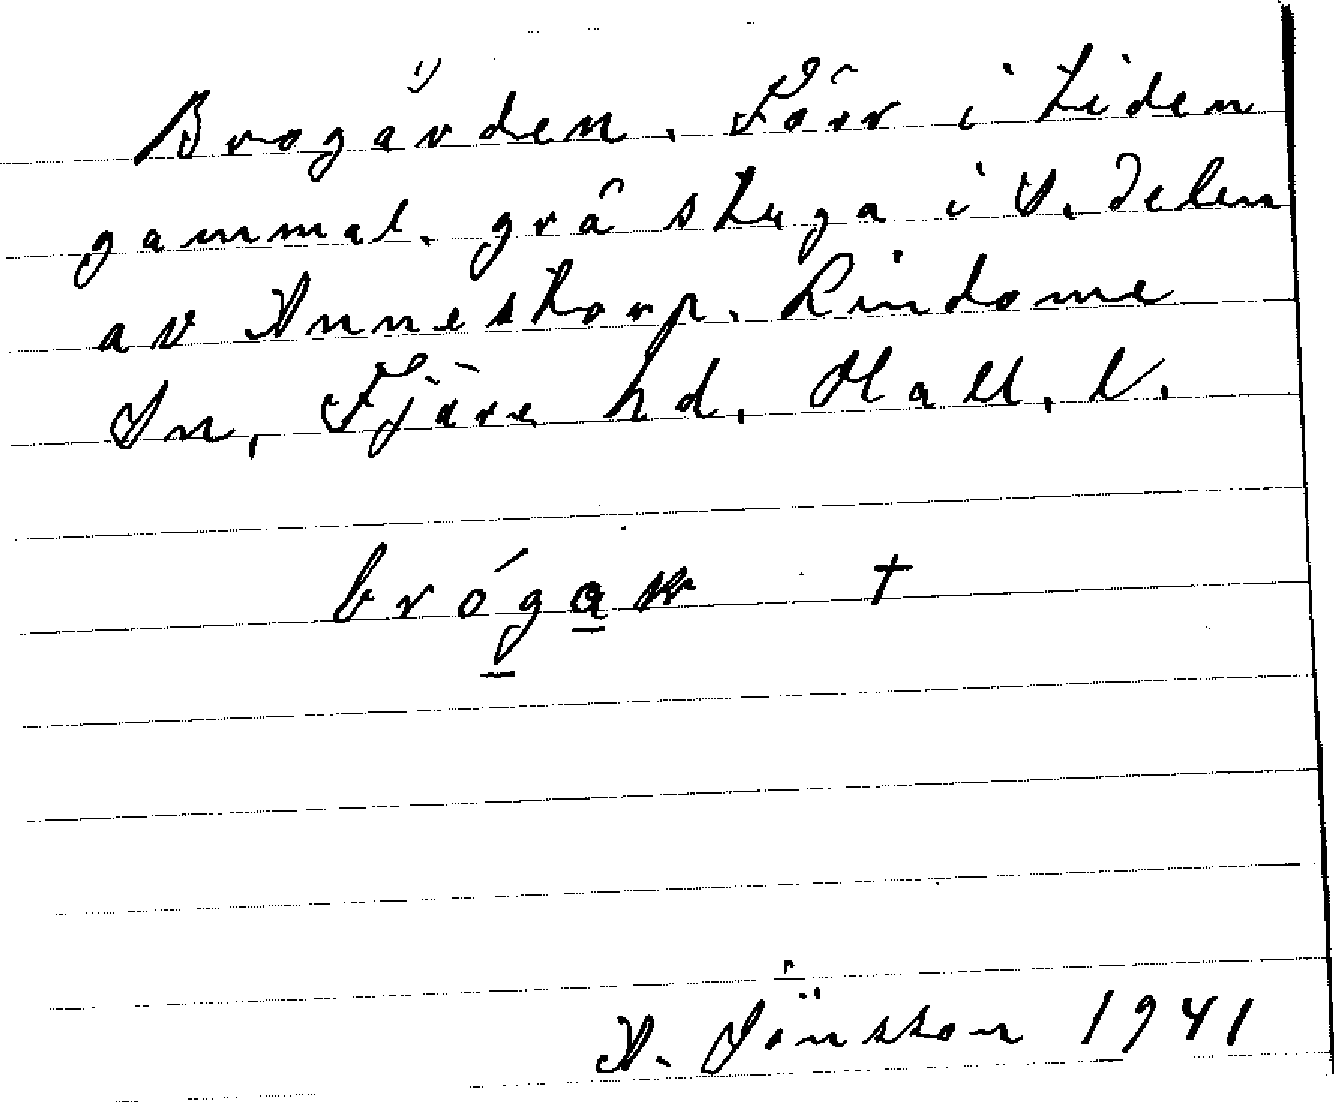 Brogården. Förr i tiden
gammal, grå stuga i S. delen
av Annestorp. Lindome
Sn, Fjäre hd, Hall. l.
brógaṇ †
A. Jönsson 1941